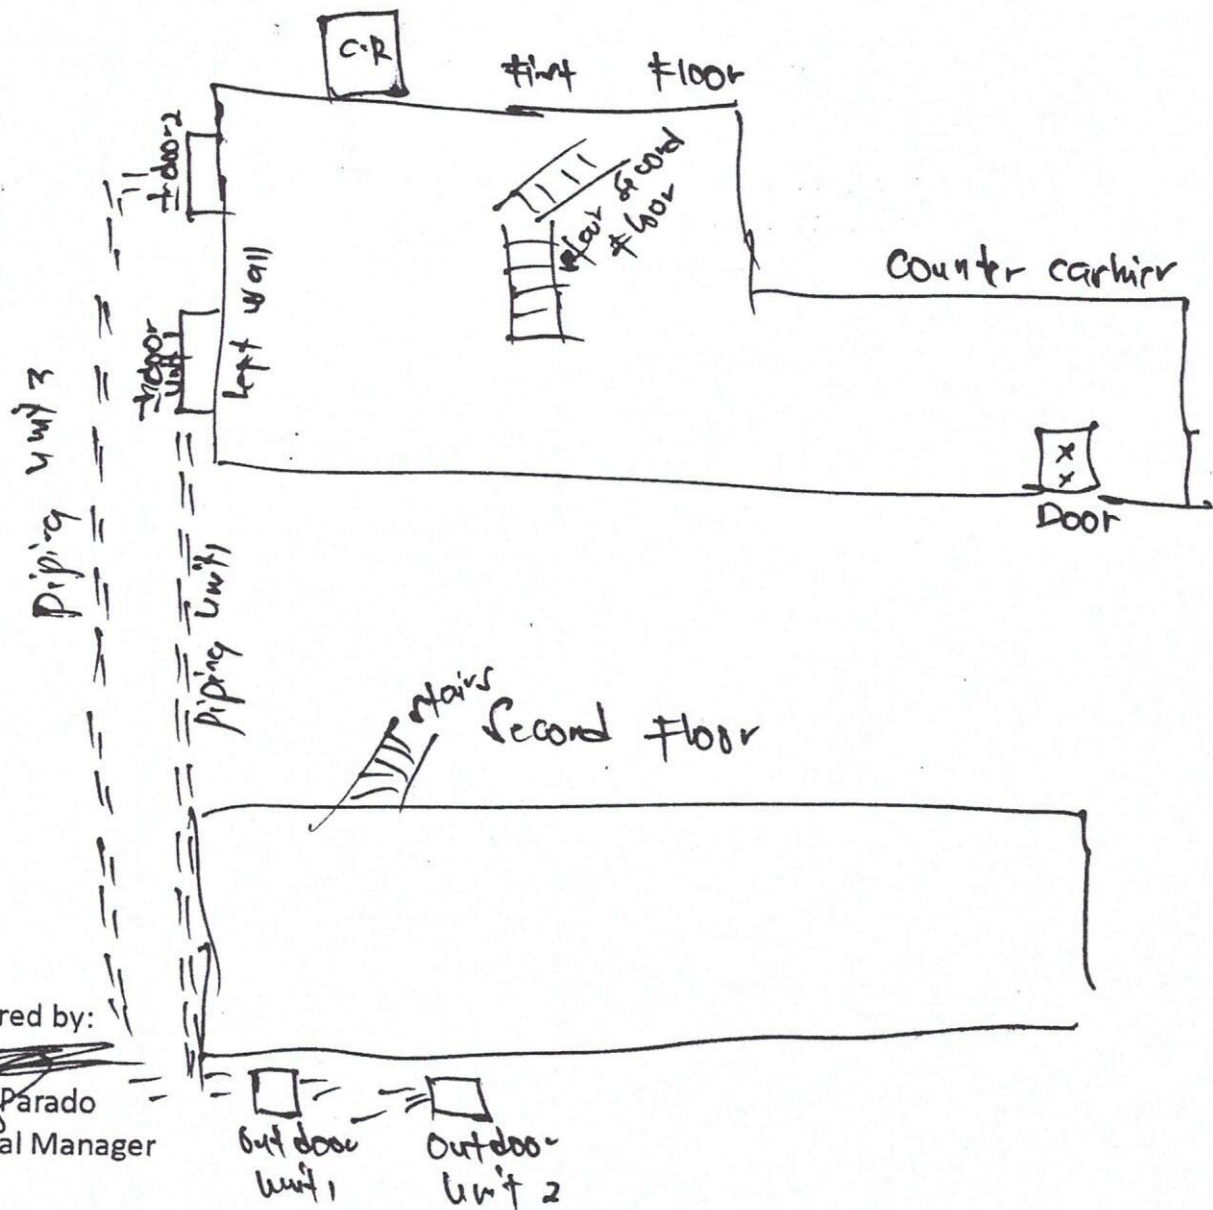 C.R
First Floor
Indoor 2
stair second
floor
Left wall
Indoor
Unit 1
Counter carhier
Door
Piping unit 3
Piping unit 1
stairs
Second Floor
red by:
Parado
al Manager
outdoor
unit 1
Outdoor
Unit 2